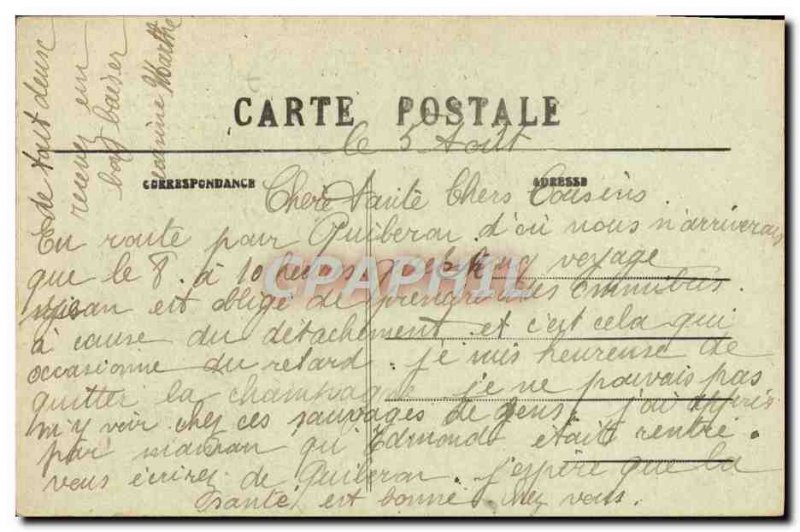 CARTE POSTALE
le 5 Août
CORRESPONDANCE
ADRESSE
Chère Tante Chers Cousins.
En route pour Quiberon d'où nous n'arriverons
que le 8. à 10 heures q el long voyage
est obligé de prendre des Omnibus.
à cause du détachement et c'est cela qui
occasionne du retard. je suis heureuse de
quitter la champagne je ne pouvais pas
m'y voir chez ces sauvages de gens, j'ai appris
par maman qu'Edmonde était rentré.
vous écrirez de Quiberon. j'espère que la
santé est bonne chez vous.
de tout deux
recevez un
bon baiser
Jeannine Marthe
CPAPHIL.com